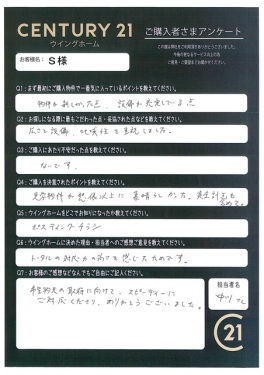 CENTURY 21
ウイングホーム
ご購入者さまアンケート
お客様名: S様
Q1:まず最初にご購入物件で一番気に入っているポイントを教えてください。
物件が新しかった点、設備が充実している点
Q2:お探しになる際に最もこだわった点・妥協された点などを教えてください。
広さと設備、地域性を重視しました。
Q3:ご購入にあたり不安だった点を教えてください。
ないです。
Q4:ご購入を決意されたポイントを教えてください。
見学物件が想像以上に素晴らしかった。資金計画も含めて。
Q5:ウイングホームをどこでお知りになったか教えてください。
ポスティングチラシ
Q6:ウイングホームに決めた理由・担当者へのご感想ご意見を教えてください。
トータルの対応力の高さを感じたためです。
Q7:お客様のご感想などなんでもご自由にご記入ください。
希望物件の取得に向けて、スピーディーに
ご対応くださり、ありがとうございました。
担当者名
中川さん
21